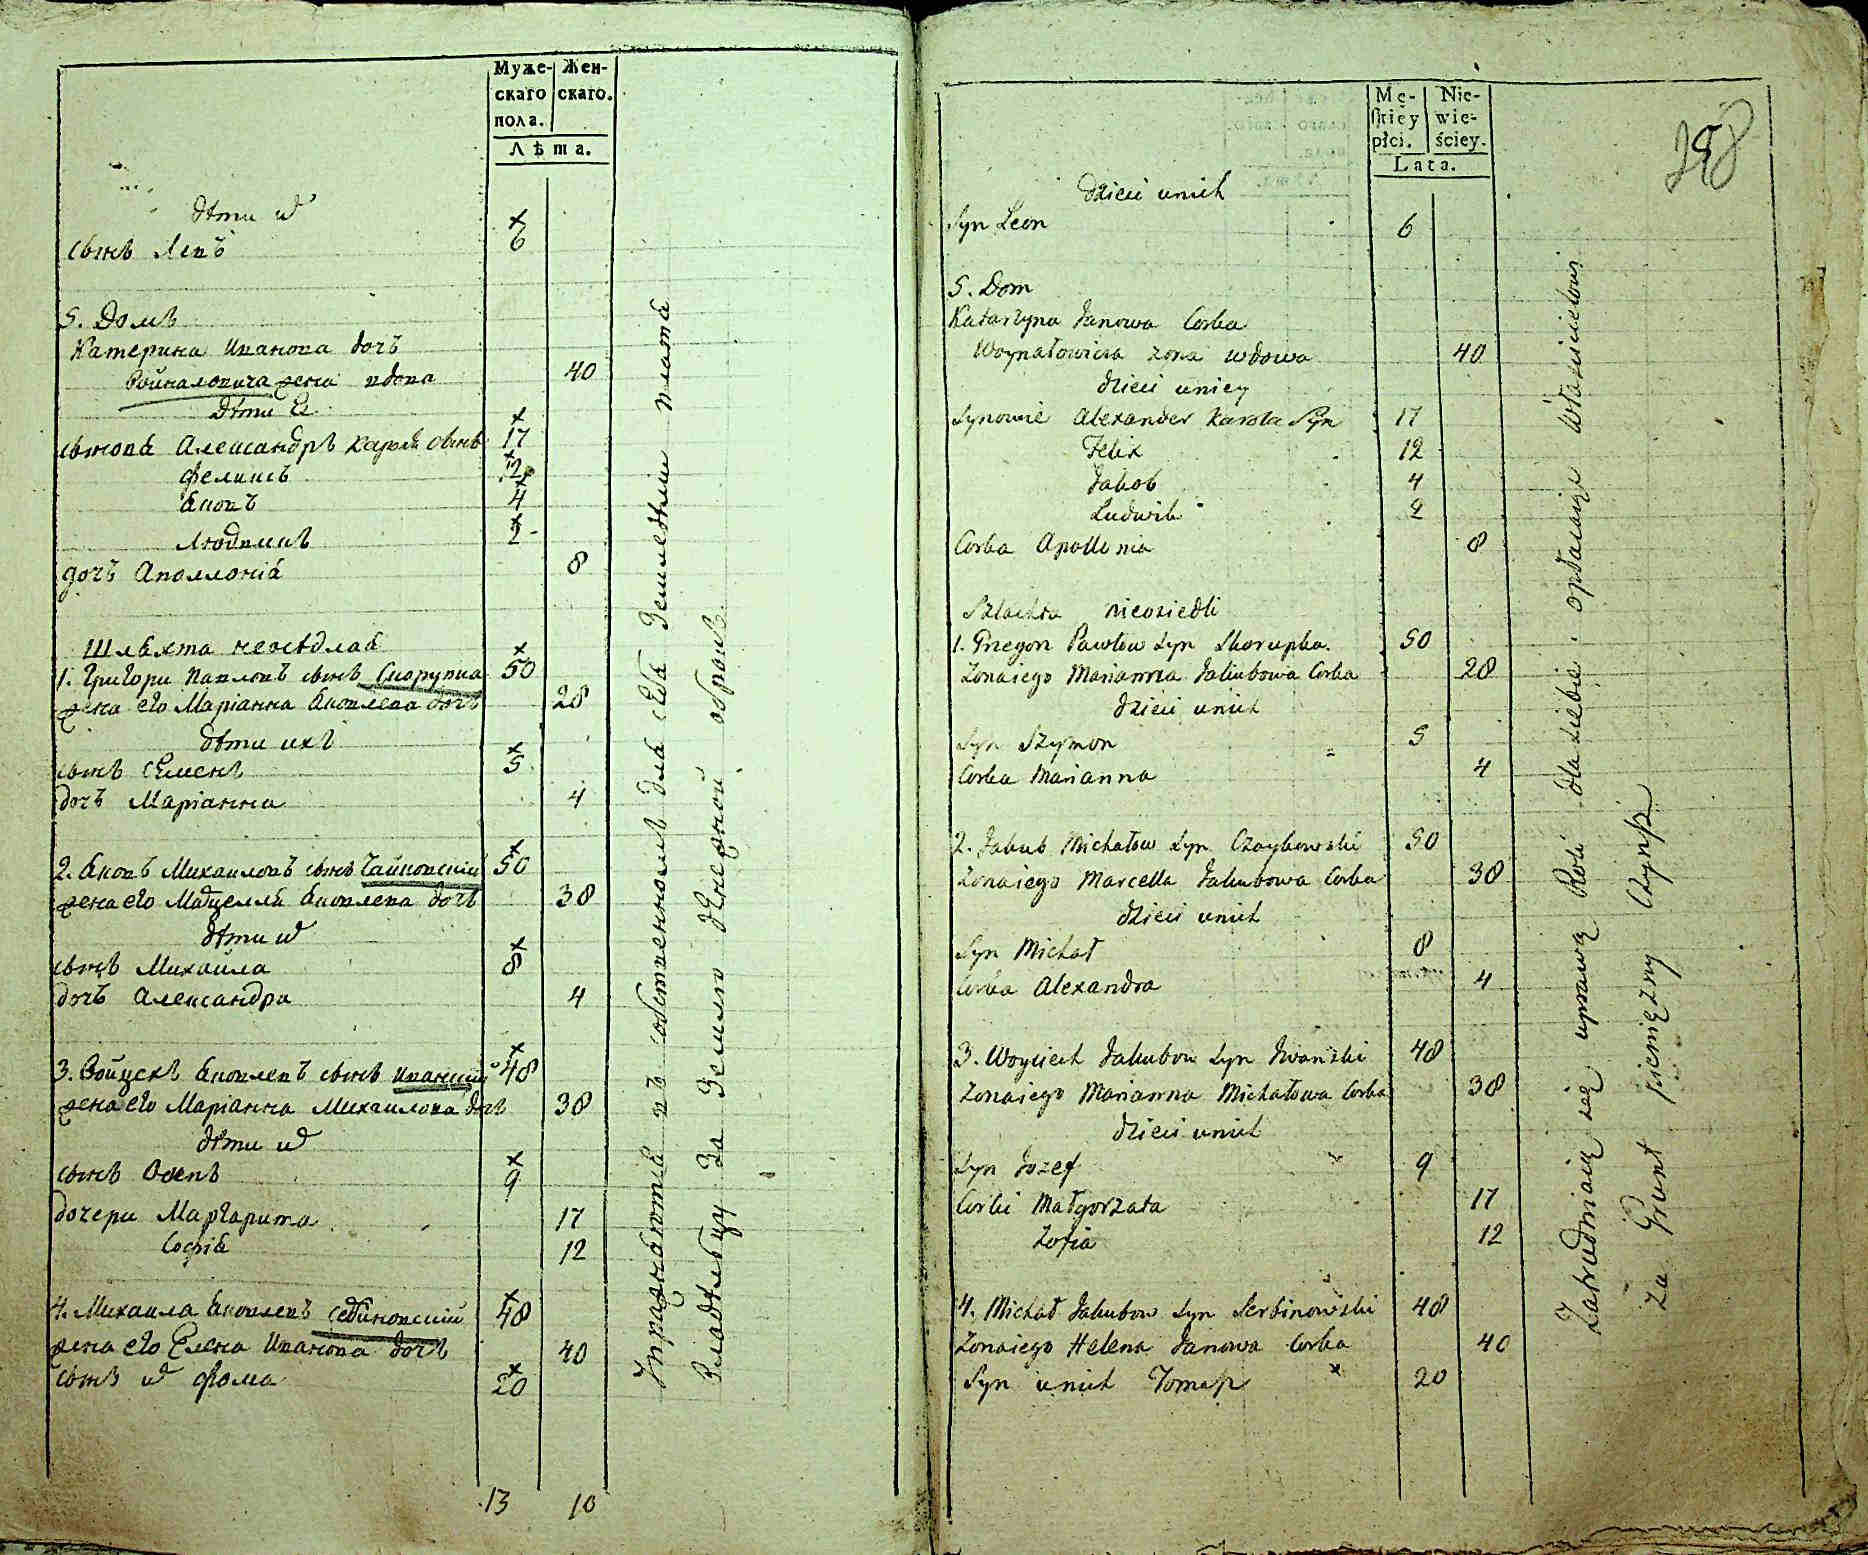 Муже- Жен-
скаго скаго.
пола.
Лѣта.
дѣти их
сынъ Левъ 6
5. Домъ
Катерина Иванова дочь
Войналовича жена вдова 40
дѣти Ея
сыновя Александръ Кароля сынъ 17
Феликсъ 12
Яковъ 4
Людвикъ 2
дочь Аполлонія 8
Шляхта неосѣдлая
1. Григори Павловъ сынъ Скорупка 50
жена его Маріанна Яковлева дочь 28
дѣти ихъ
сынъ Семенъ 5
дочь Маріанна 4
2. Яковъ Михаиловъ сынъ Чайковскій 50
жена его Марцелля Яковлева дочь 38
дѣти их
сынъ Михаила 8
дочь Александра 4
3. Войцехъ Яковлевъ сынъ Иванскій 48
жена его Маріанна Михаилова дочь 38
дѣти их
сынъ Осепъ 9
дочери Маргарита 17
Софія 12
4. Михаила Яковлевъ Сербиновскій 48
жена его Елена Иванова дочь 40
сынъ их Фома 20
13 10
Упражняются въ собственномъ для себя Земледѣлии платя
Владѣльцу За Землю денежной оброкъ
Mę- Nie-
skiey wie-
płci. ściey.
Lata.
dzieci unich
Syn Leon 6
5. Dom
Katarzyna Janowa Corka
Woynałowicza żona wdowa 40
dzieci uniey
Synowie Alexander Karola Syn 17
Felix 12
Jakob 4
Ludwik 2
Corka Apollonia 8
Szlachta nieosiedli
1. Grzegorz Pawłow Syn Skorupka 50
Zonaiego Marianna Jakubowa Corka 28
dzieci unich
Syn Szymon 5
Corka Marianna 4
2. Jakub Michałow Syn Czaykowski 50
Zonaiego Marcella Jakubowa Corka 38
dzieci unich
Syn Michał 8
Corka Alexandra 4
3. Woyciech Jakubow Syn Iwanski 48
Zonaiego Marianna Michałowa Corka 38
dzieci unich
Syn Jozef 9
Corki Małgorzata 17
Zofia 12
4. Michał Jakubow Syn Serbinowski 48
Zonaiego Helena Janowa Corka 40
Syn unich Tomasz 20
Zatrudniaią się uprawą Roli dla siebie, opłacaiąc Właścicielowi
za Grunt pieniężny Czynsz